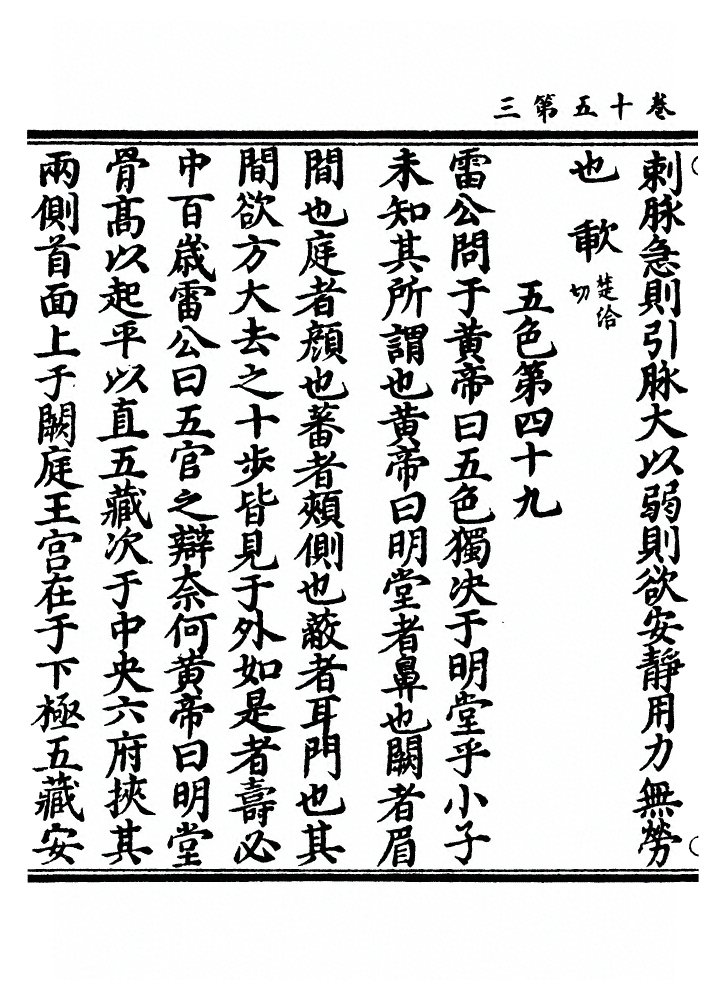 卷十五第三
刺脉急則引脉大以弱則欲安靜用力無勞
也　歃楚洽切
五色第四十九
雷公問于黄帝曰五色獨决于明堂乎小子
未知其所謂也黄帝曰明堂者鼻也闕者眉
間也庭者顔也蕃者頰側也蔽者耳門也其
間欲方大去之十步皆見于外如是者壽必
中百歲雷公曰五官之辯奈何黄帝曰明堂
骨髙以起平以直五藏次于中央六府挾其
兩側首面上于闕庭王宮在于下極五藏安